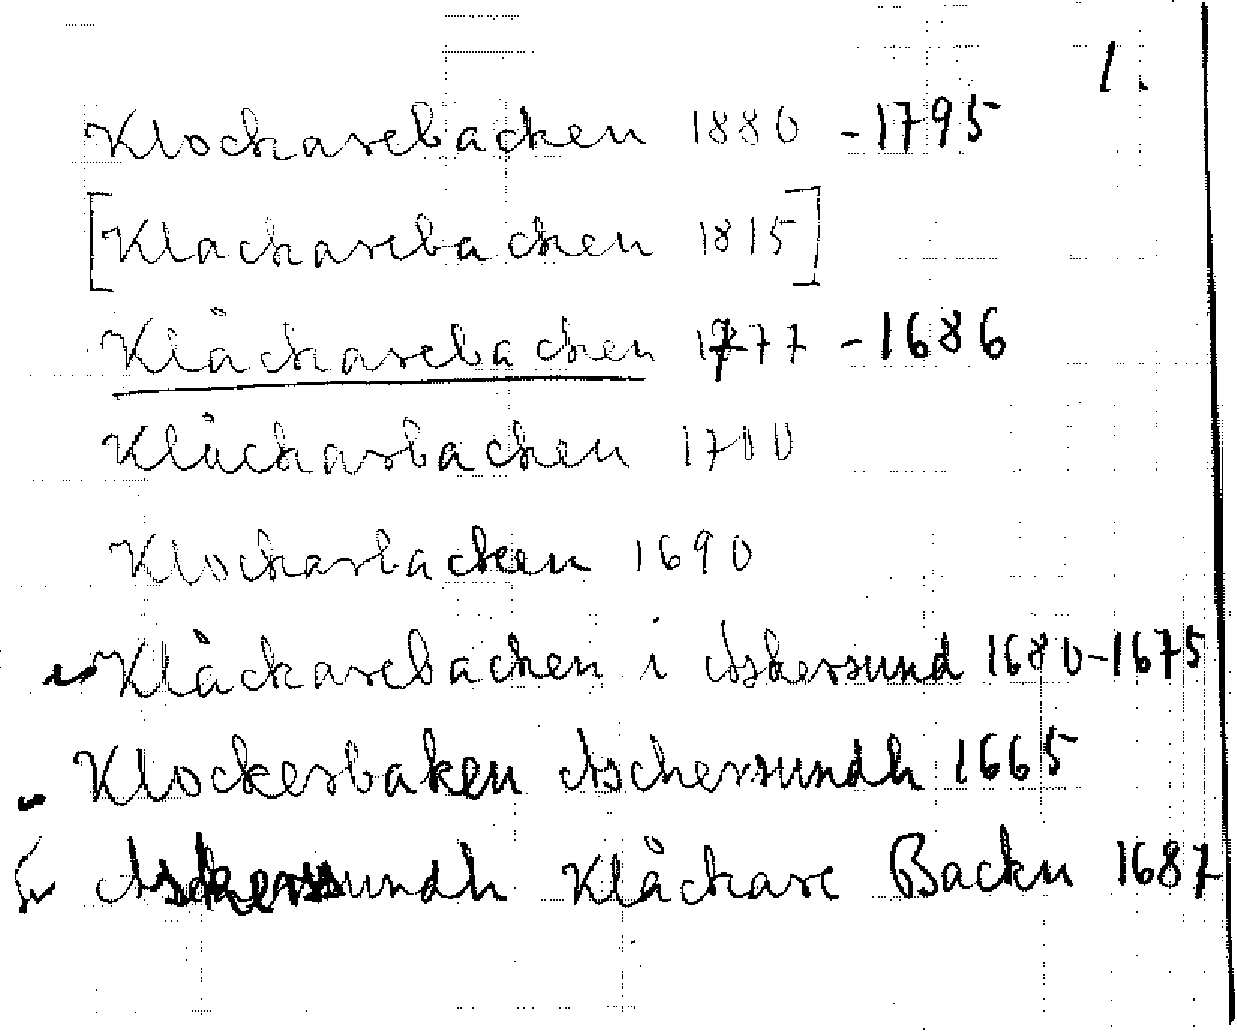 1.
Klockarebacken 1880 - 1795
[Klackarebacken 1815]
Kläckarebacken 1777 - 1686
Klåckarbacken 1700
Klockarbacken 1690
Klåckarebacken i Askersund 1680-1675
Klockerbaken Aschersundh 1665
Askersundh Klåckare Backen 1687